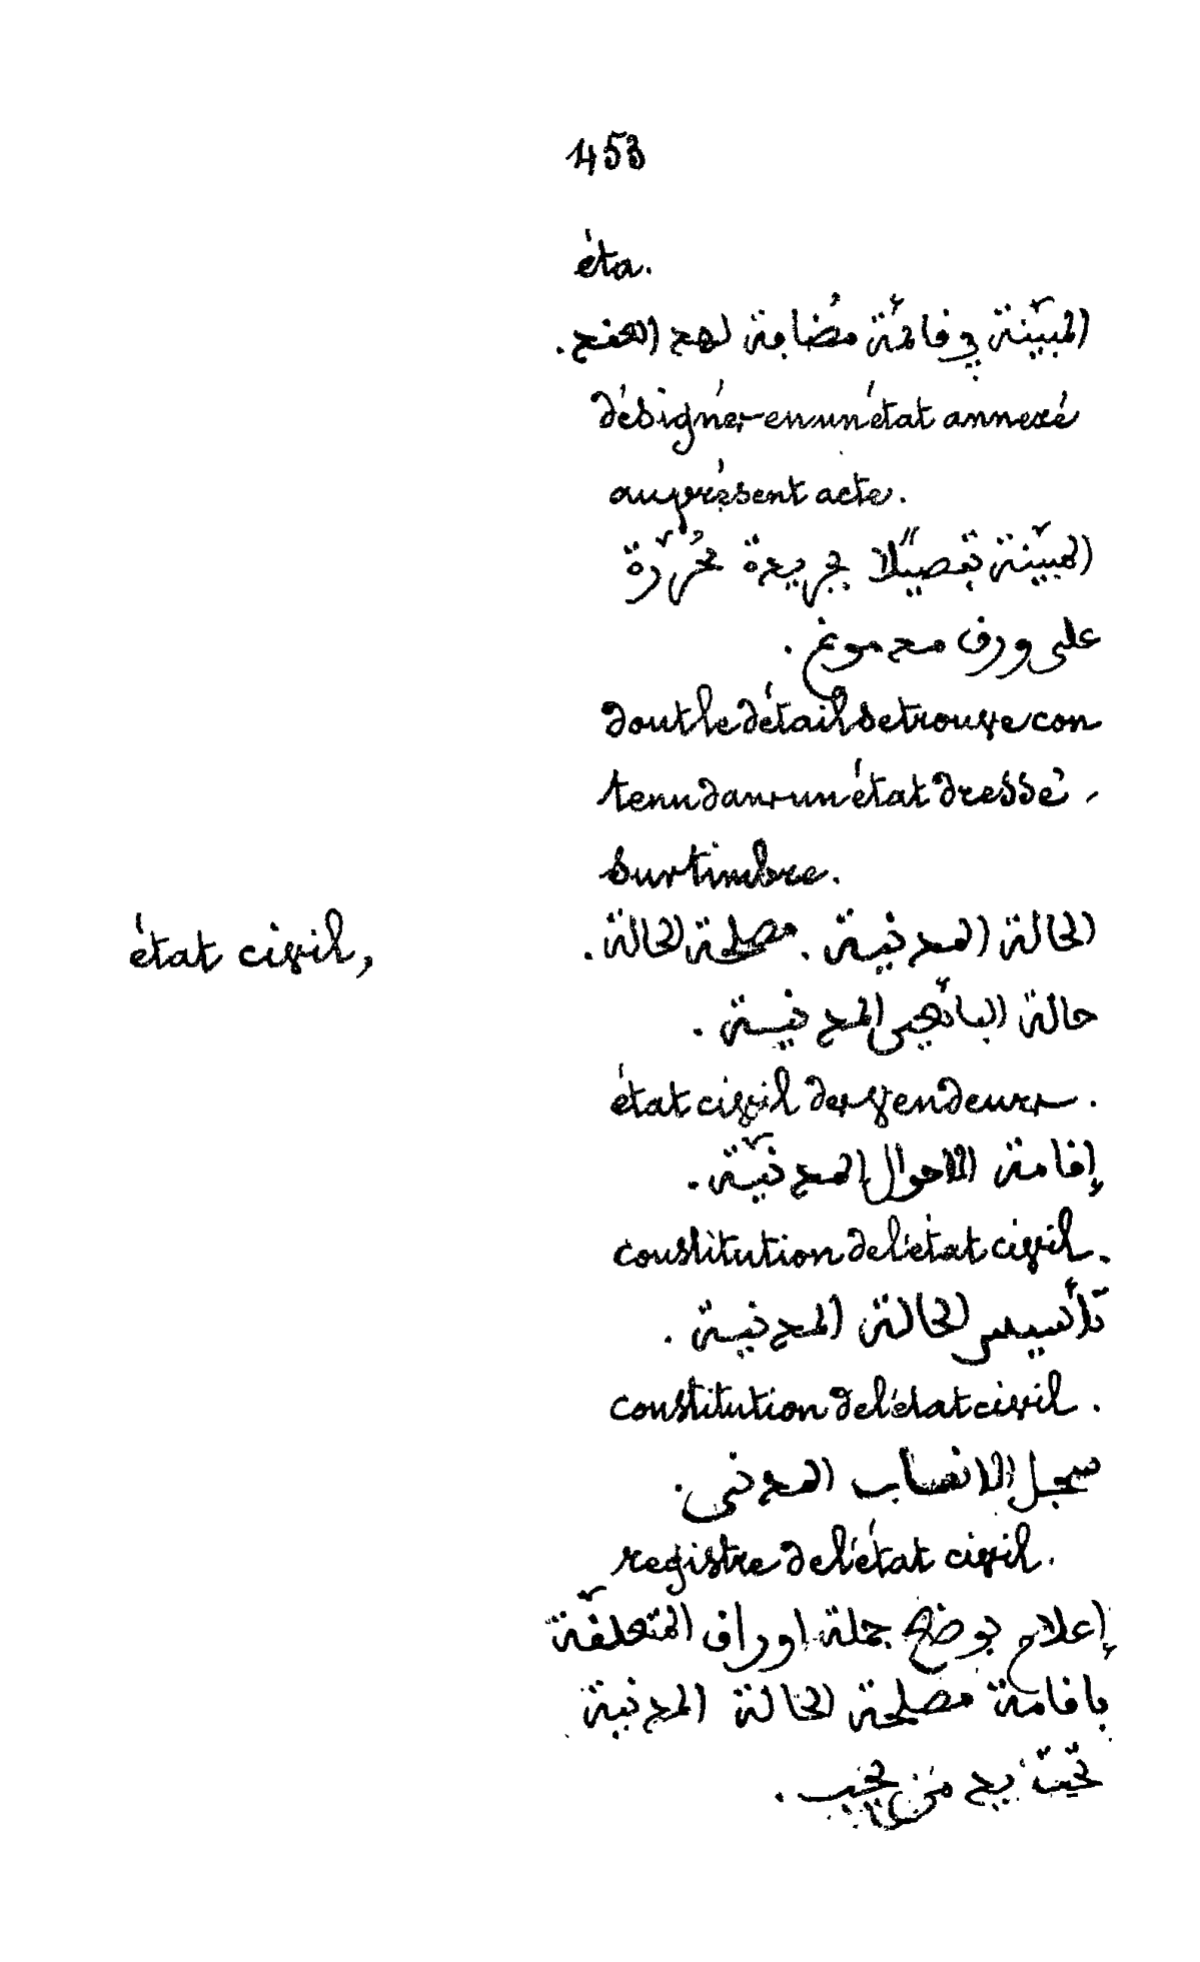 453
éta.
المبيّنة في قائمة مُضافة لهذ العقد.
désignés en un état annexé
au présent acte.
المبيّنة تفصيلًا بجريدة مُحرّرة
على ورق مدموغ.
dont le détail se trouve con
tenu dans un état dressé -
sur timbre.
état civil, الحالة المدنية. مصلحة الحالة.
حالة البائعين المدنيـة.
état civil des vendeurs.
إقامة الاحوال المدنيّة.
constitution de l'état civil.
تأسيس الحالة المدنيـة.
constitution de l'état civil.
سجل الانساب المدني.
registre de l'état civil.
إعلام بوضع جملة اوراق المتعلقّة
باقامة مصلحة الحالة المدنية
تحت يد من يجب.